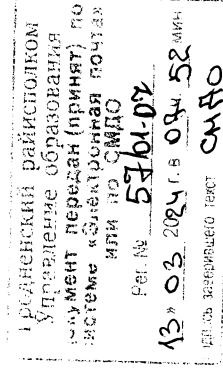 Гродненский райисполком
Управление образования
Документ передан (принят) по
системе «Электронная почта»
или по СМДО
Рег. № 57/01-07
"13" 03 2024 г. в 08 ч. 52 мин
подпись заверившего текст СМДО